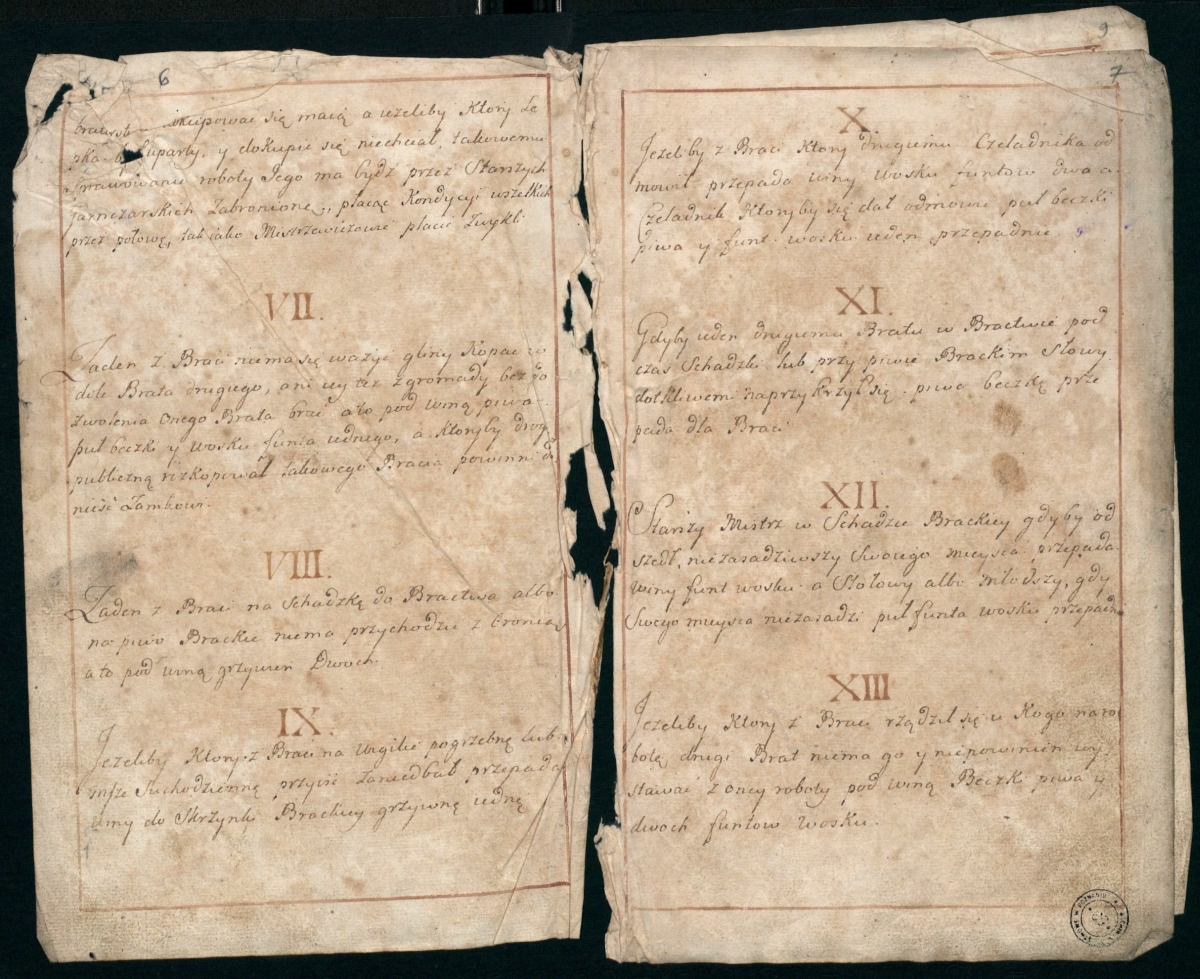 6
bractw dokupować się maią a ieżeliby Ktory Ze
pka był uparty, y dokupić się niechciał, takowemu
Sprawowanie roboty Jego ma bydz przez Starszych
Garnczarskich Zabronione, płacąc Kondycyi wszelkich
przez połowę, tak iako Mistrzewiczowie płacić Zwykli
VII.
Zaden z Braci niema się ważyć gliny Kopać w
dole Brata drugiego, ani iey też z gromady bez po
zwolenia Onego Brata brać a to pod winą piwa
puł beczki y wosku funta iednego, a Ktoryby drogę
publiczną rozkopował takowego Bracia powinni do
nieść Zamkowi.
VIII.
Zaden z Braci na Schadzkę do Bractwa albo
na piwo Brackie niema przychodzić z bronią
a to pod winą grzywien Dwoch.
IX.
Jeżeliby Ktory z Braci na Wigilie pogrzebne lub
mszę Suchodzienną przyiść zaniedbał przepada
winy do Skrzynki Brackiey grzywnę iednę
9
7
X.
Jeżeliby z Braci Ktory drugiemu Czeladnika od
mowił przepada winy wosku funtow dwa a
Czeladnik Ktoryby się dał odmowić puł beczki
piwa y funt wosku ieden przepadnie
XI.
Gdyby ieden drugiemu Bratu w Bractwie pod
czas Schadzki lub przy piwie Brackim Słowy
dotkliwem naprzykrzył się piwa beczkę prze
pada dla Braci
XII.
Starszy Mistrz w Schadzce Brackiey gdyby od
szedł, niezasadziwszy Swoiego mieysca przepada
winy funt wosku a Stołowy albo młodszy, gdy
Swego mieysca niezasadzi puł funta wosku przepadnie
XIII
Jeżeliby Ktory z Braci rządził się u Kogo na ro
botę, drugi Brat niema go y niepowinien wy
stawać z oney roboty pod winą Beczki piwa y
dwoch funtow wosku.